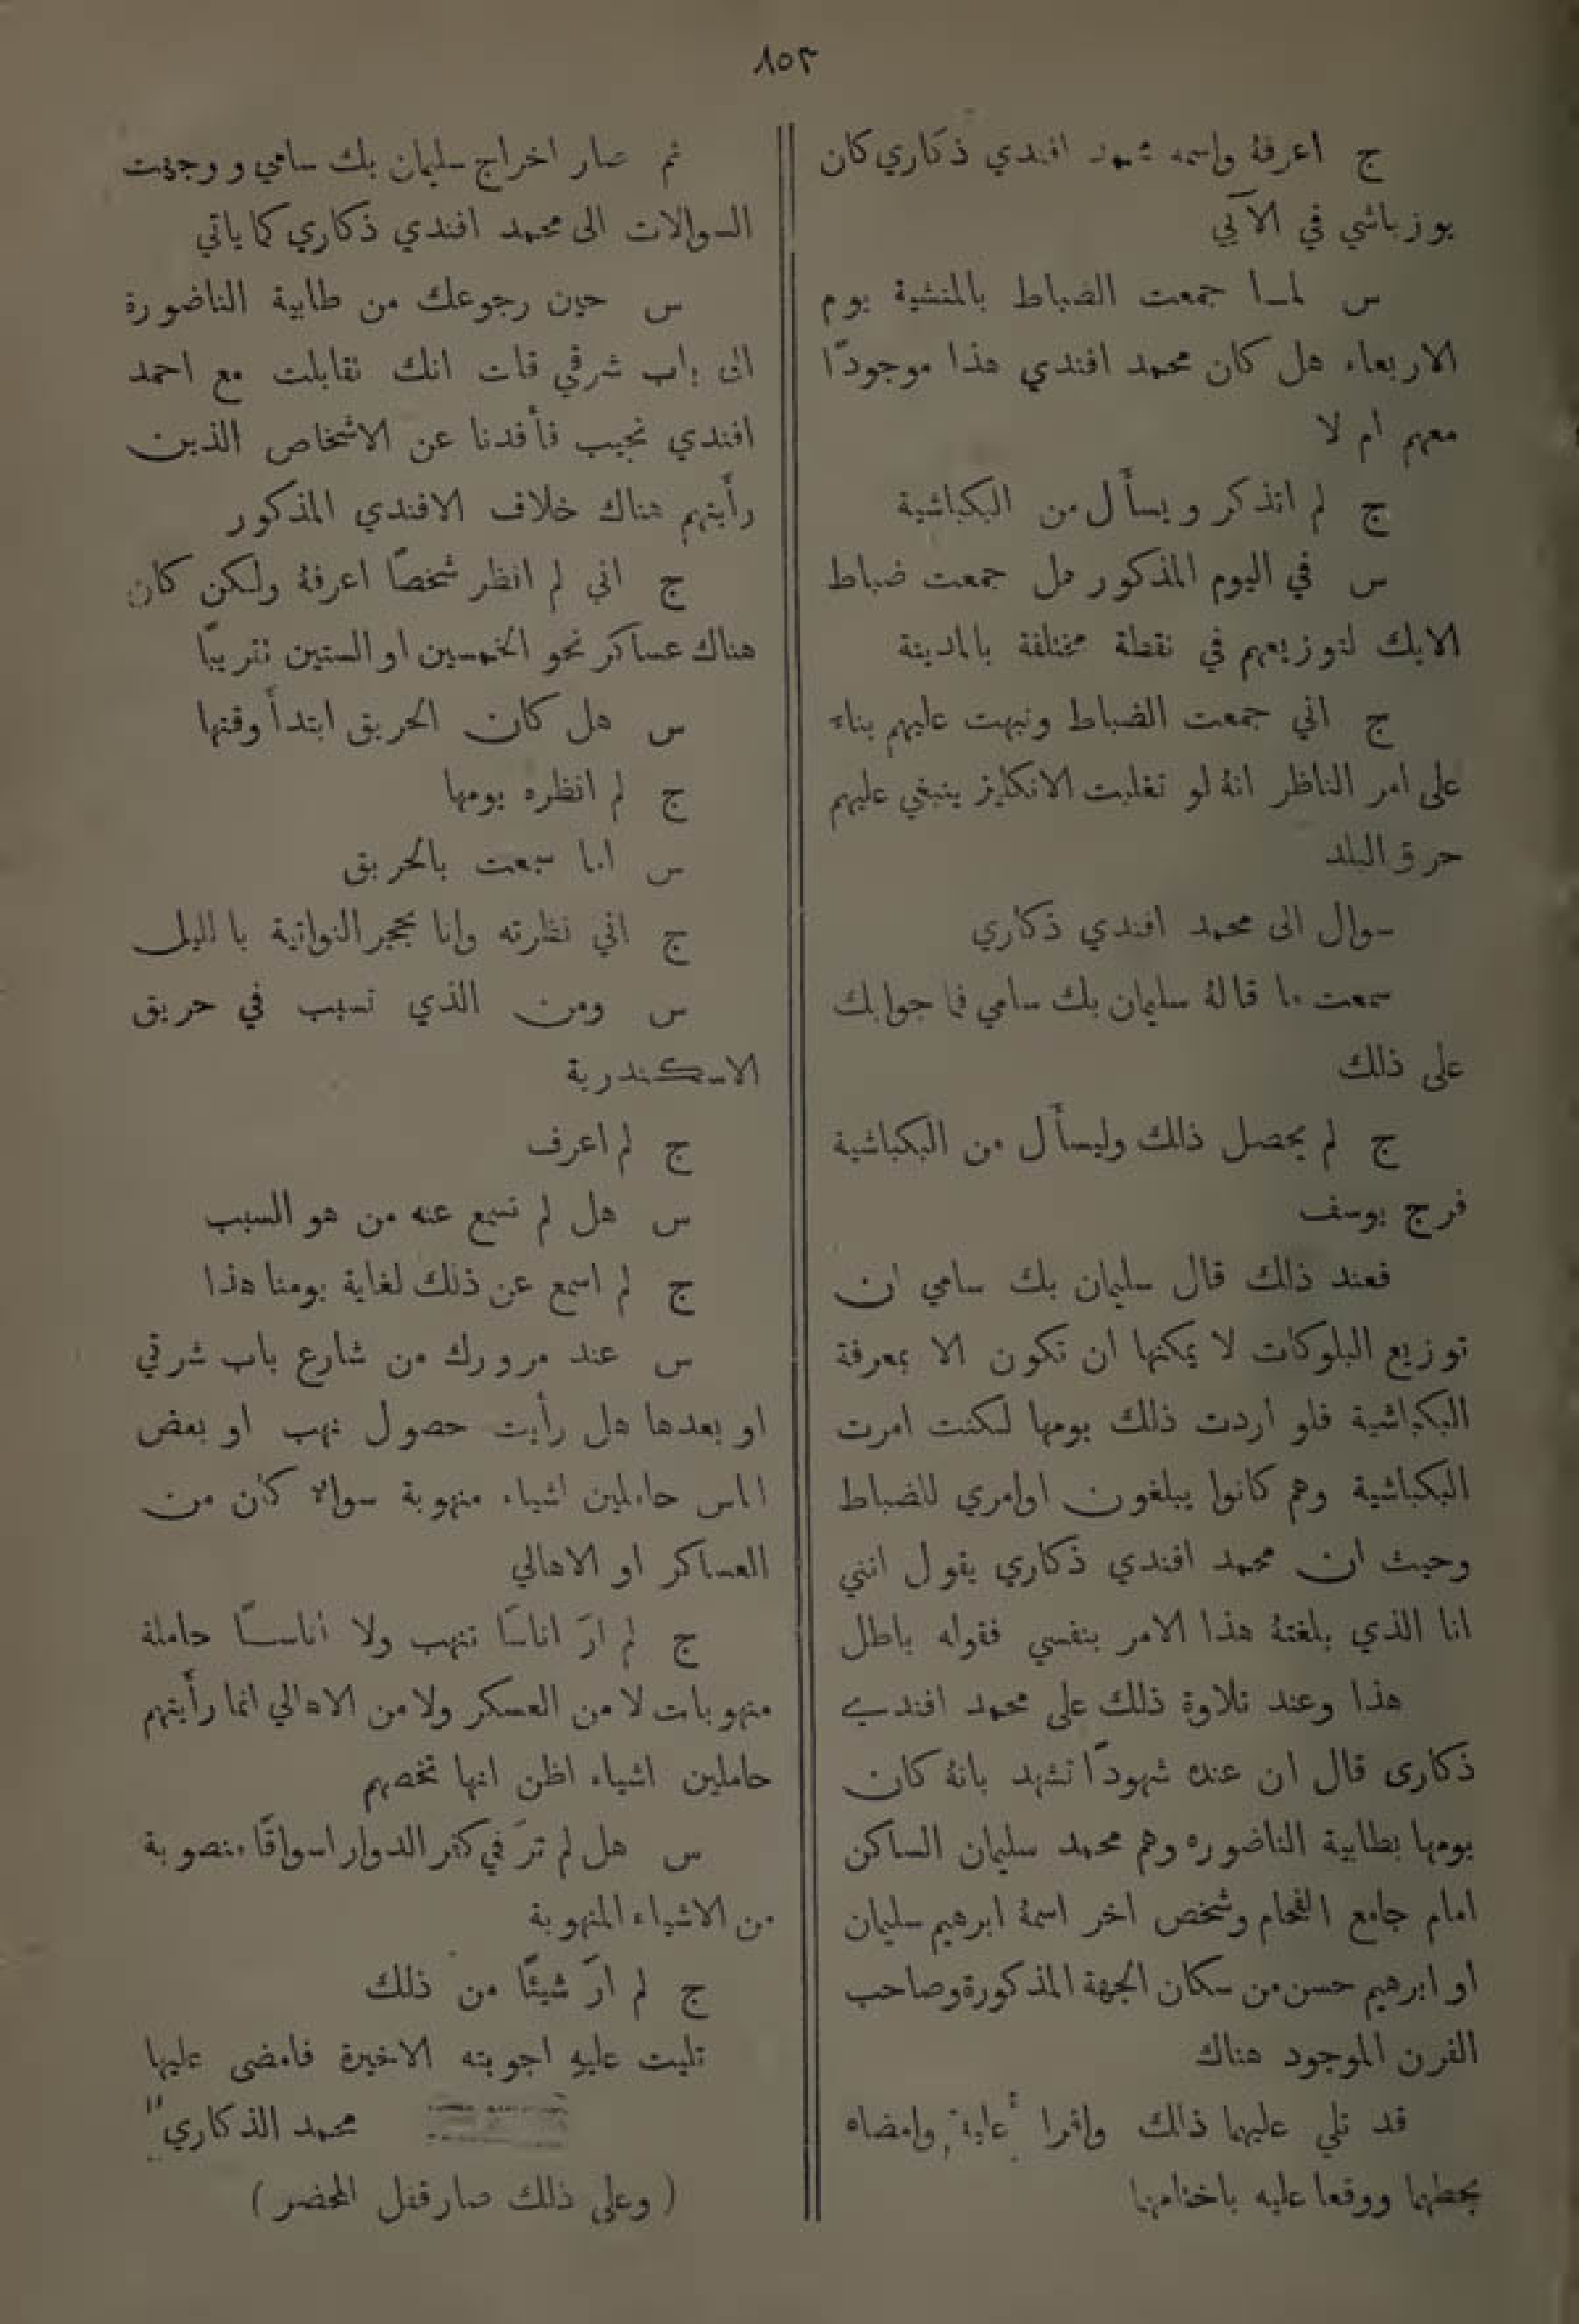 ٨٥٣
ج اعرفهُ واسمه محمد افندي ذكاري كان
يوزباشي في الآلآي
س لمـا جمعت الضباط بالمنشية يوم
الاربعاء هل كان محمد افندي هذا موجودًا
معهم ام لا
ج لم اتذكر ويسأل من البكباشية
س في اليوم المذكور هل جمعت ضباط
الايك لتوزيعهم في نقطة مختلفة بالمدينة
ج اني جمعت الضباط ونبهت عليهم بناء
على امر الناظر انهُ لو تغلبت الانكليز ينبغي عليهم
حرق البلد
سوال الى محمد افندي ذكاري
سمعت ما قالهُ سليمان بك سامي فما جوابك
على ذلك
ج لم يحصل ذلك وليسأل من البكباشية
فرج يوسف
فعند ذلك قال سليمان بك سامي ان
توزيع البلوكات لا يمكنها ان تكون الا بمعرفة
البكباشية فلو اردت ذلك يومها لكنت امرت
البكباشية وهم كانوا يبلغون اوامري للضباط
وحيث ان محمد افندي ذكاري يقول انني
انا الذي بلغتهُ هذا الامر بنفسي فقوله باطل
هذا وعند تلاوة ذلك على محمد افندي
ذكارى قال ان عنده شهودًا تشهد بانهُ كان
يومها بطابية الناضوره وهم محمد سليمان الساكن
امام جامع الفحام وشخص اخر اسمهُ ابرهيم سليمان
او ابرهيم حسن من سكان الجهة المذكورة وصاحب
الفرن الموجود هناك
قد تلي عليهما ذلك واقرا عليه وامضاه
بخطهما ووقعا عليه باختامهما
ثم صار اخراج سليمان بك سامي ووجهت
السوالات الى محمد افندي ذكاري كما ياتي
س حين رجوعك من طابية الناضورة
الى باب شرقي قلت انك تقابلت مع احمد
افندي نجيب فأفدنا عن الاشخاص الذين
رأيتهم هناك خلاف الافندي المذكور
ج اني لم انظر شخصًا اعرفهُ ولكن كان
هناك عساكر نحو الخمسين او الستين تقريبًا
س هل كان الحريق ابتدأ وقتها
ج لم انظره يومها
س اما سمعت بالحريق
ج اني نظرته وانا بحجر النواتية بالليل
س ومن الذي تسبب في حريق
الاسكندرية
ج لم اعرف
س هل لم تسمع عنه من هو السبب
ج لم اسمع عن ذلك لغاية يومنا هذا
س عند مرورك من شارع باب شرقي
او بعدها هل رأيت حصول نهب او بعض
الناس حاملين اشياء منهوبة سوالا كان من
العساكر او الاهالي
ج لم ارَ اناسًا تنهب ولا اناسـًا حاملة
منهوبات لا من العسكر ولا من الاهالي انما رأيتهم
حاملين اشياء اظن انها تخصهم
س هل لم ترَ في كفر الدوار اسواقًا منصوبة
من الاشياء المنهوبة
ج لم ارَ شيئًا من ذلك
تليت عليهِ اجوبته الاخيرة فامضى عليها
محمد الذكاري
(وعلى ذلك صار قفل المحضر)